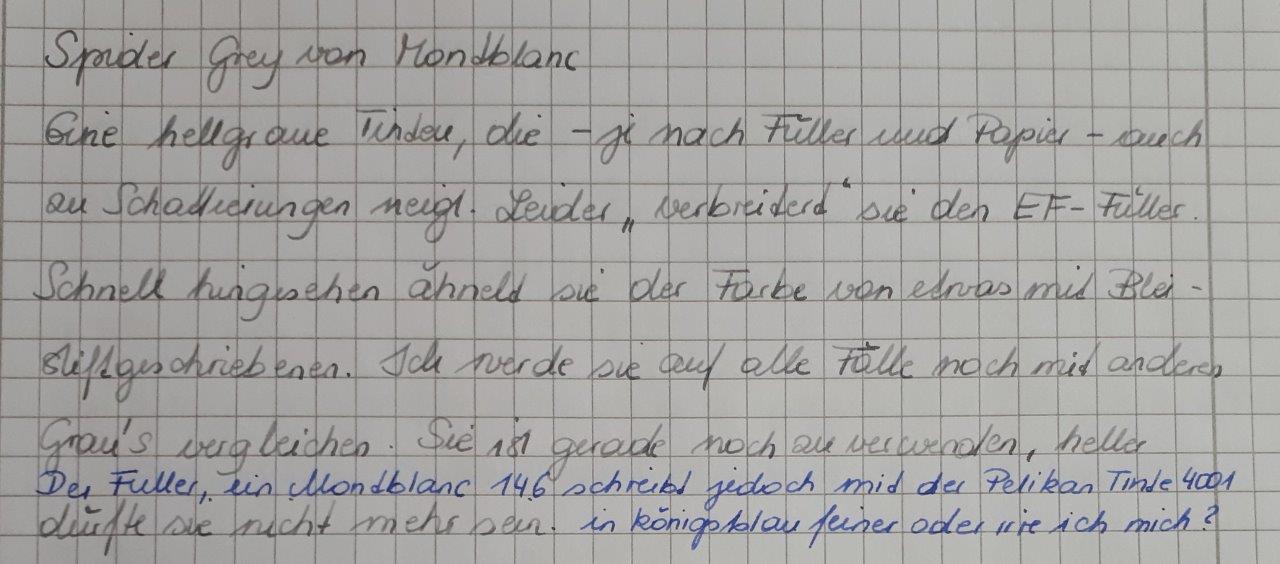 Spider Grey von Montblanc
Eine hellgraue Tinten, die – je nach Füller und Papier – auch
zu Schattierungen neigt. Leider „verbreitert“ sie den EF-Füller.
Schnell hingesehen ähnelt sie der Farbe von etwas mit Blei-
stiftgeschriebenen. Ich werde sie auf alle Fälle noch mit anderen
Grau's vergleichen. Sie ist gerade noch zu verwenden, heller
Der Füller, ein Montblanc 146 schreibt jedoch mit der Pelikan Tinte 4001
dürfte sie nicht mehr sein. in königsblau feiner oder irre ich mich?